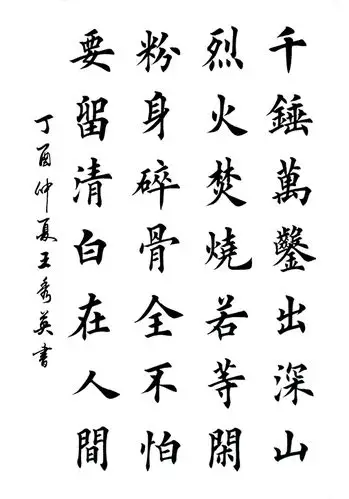 千錘萬鑿出深山
烈火焚燒若等閑
粉身碎骨全不怕
要留清白在人間
丁酉仲夏王秀英書